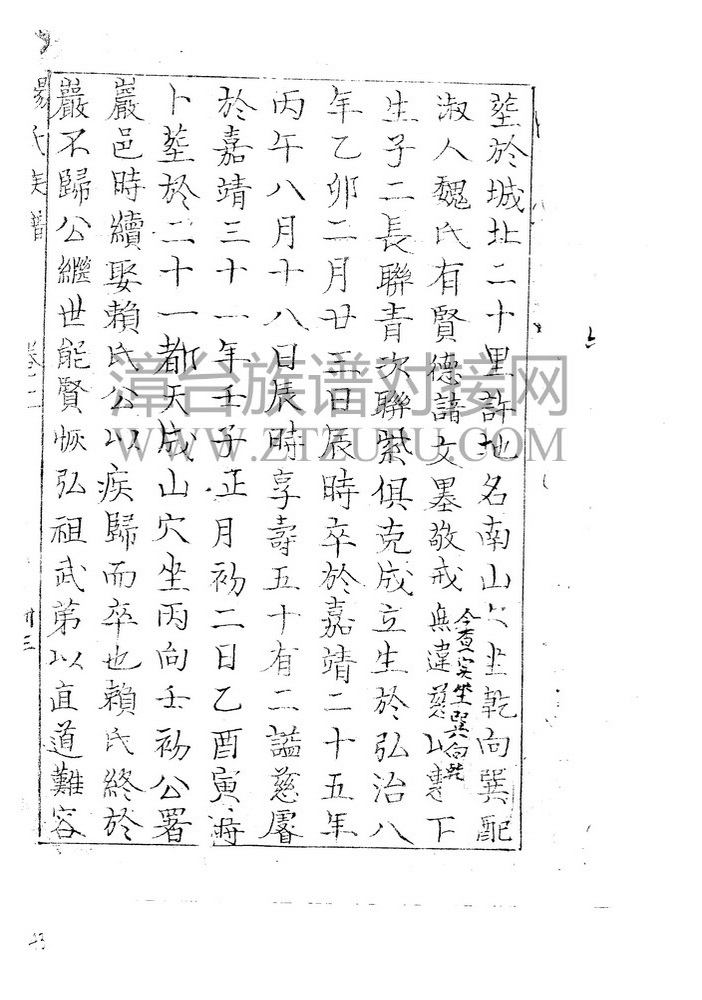 塟於城北二十里許地名南山穴坐乾向巽配
今查实坐巽向乾
淑人魏氏有賢德諳文墨敬戒無違慈以惠下
生子二長聯青次聯紫俱克成立生於弘治八
年乙卯二月廿三日辰時卒於嘉靖二十五年
丙午八月十八日辰時享壽五十有二謚慈睿
於嘉靖三十一年壬子正月初二日乙酉寅時
卜塟於二十一都天成山穴坐丙向壬初公署
巖邑時續娶賴氏公以疾歸而卒也賴氏終於
巖不歸公繼世能賢恢弘祖武第以直道難容
楊氏族譜
卷二
卅三
漳台族谱对接网
WWW.ZTZUPU.COM
43